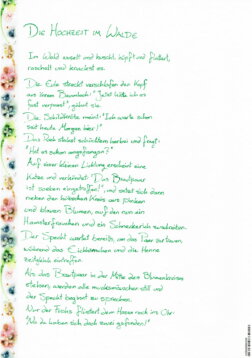 DIE HOCHZEIT IM WALDE
Im Wald raschelt und knackst, hüpft und flattert,
raschelt und knackst es.
Die Eule streckt verschlafen den Kopf
aus ihrem Baumloch: "Jetzt hätte ich es
fast verpasst", gähnt sie.
Die Schildkröte meint: "Ich warte schon
seit heute Morgen hier!"
Das Reh stakst schüchtern herbei und fragt:
"Hat es schon angefangen?"
Auf einer kleinen Lichtung erscheint eine
Katze und verkündet: "Das Brautpaar
ist soeben eingetroffen!", und setzt sich dann
neben den hübschen Kreis aus pinken
und blauen Blumen, auf den nun ein
Hamsterfräuchen und ein Schneckerich
Der Specht wartet bereits, um das Paar zu trauen,
während das Eichhörnchen und die Henne
eintreffen.
Als das Brautpaar in der Mitte des Blumenkreises
stehen, werden alle mucksmäuschen still und
der Specht beginnt zu sprechen.
Nur der Fuchs flüstert dem Hasen noch ins Ohr:
"Na, da haben sich doch zwei gefunden!"